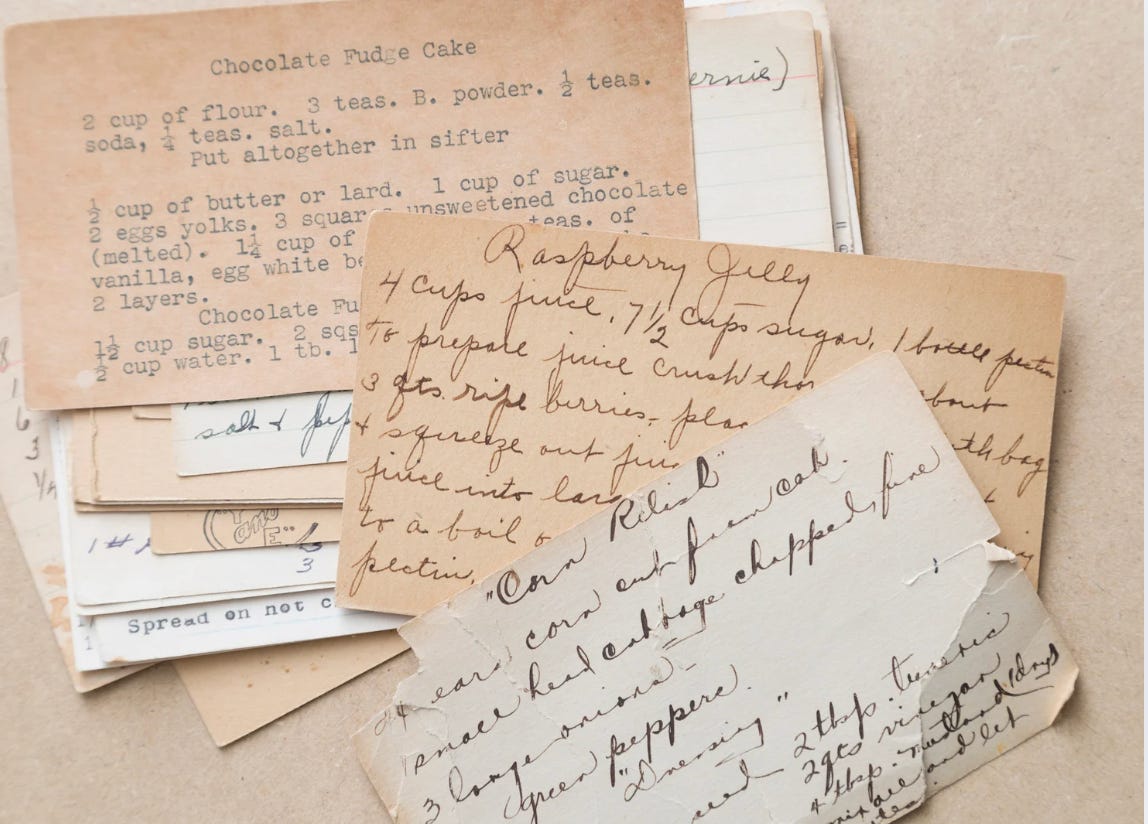 Chocolate Fudge Cake
2 cup of flour. 3 teas. B. powder. ½ teas.
soda, ¼ teas. salt.
Put altogether in sifter
½ cup of butter or lard. 1 cup of sugar.
2 eggs yolks. 3 squar s unsweetened chocolate
(melted). 1¼ cup of teas. of
vanilla, egg white be
2 layers.
Chocolate Fu
1½ cup sugar. 2 sqs
½ cup water. 1 tb. l
ernie)
Raspberry Jelly
4 cups juice, 7½ cups sugar, 1 bottle pectin
To prepare juice crush thor about
3 qts. ripe berries, plac
+ squeeze out jui th bag
juice into larg
to a boil
pectin,
salt & pep
8
1
6
3
1/4
"Y
and
E"
1 #
3
Spread on not c
1
"Corn Relish"
24 ears corn cut from cob.
1 small head cabbage chopped fine
3 large onions
green peppers.
"Dressing"
2 tbsp. tumeric
2 qts vinegar
4 tbsp. mustard (dry)
mix all and let